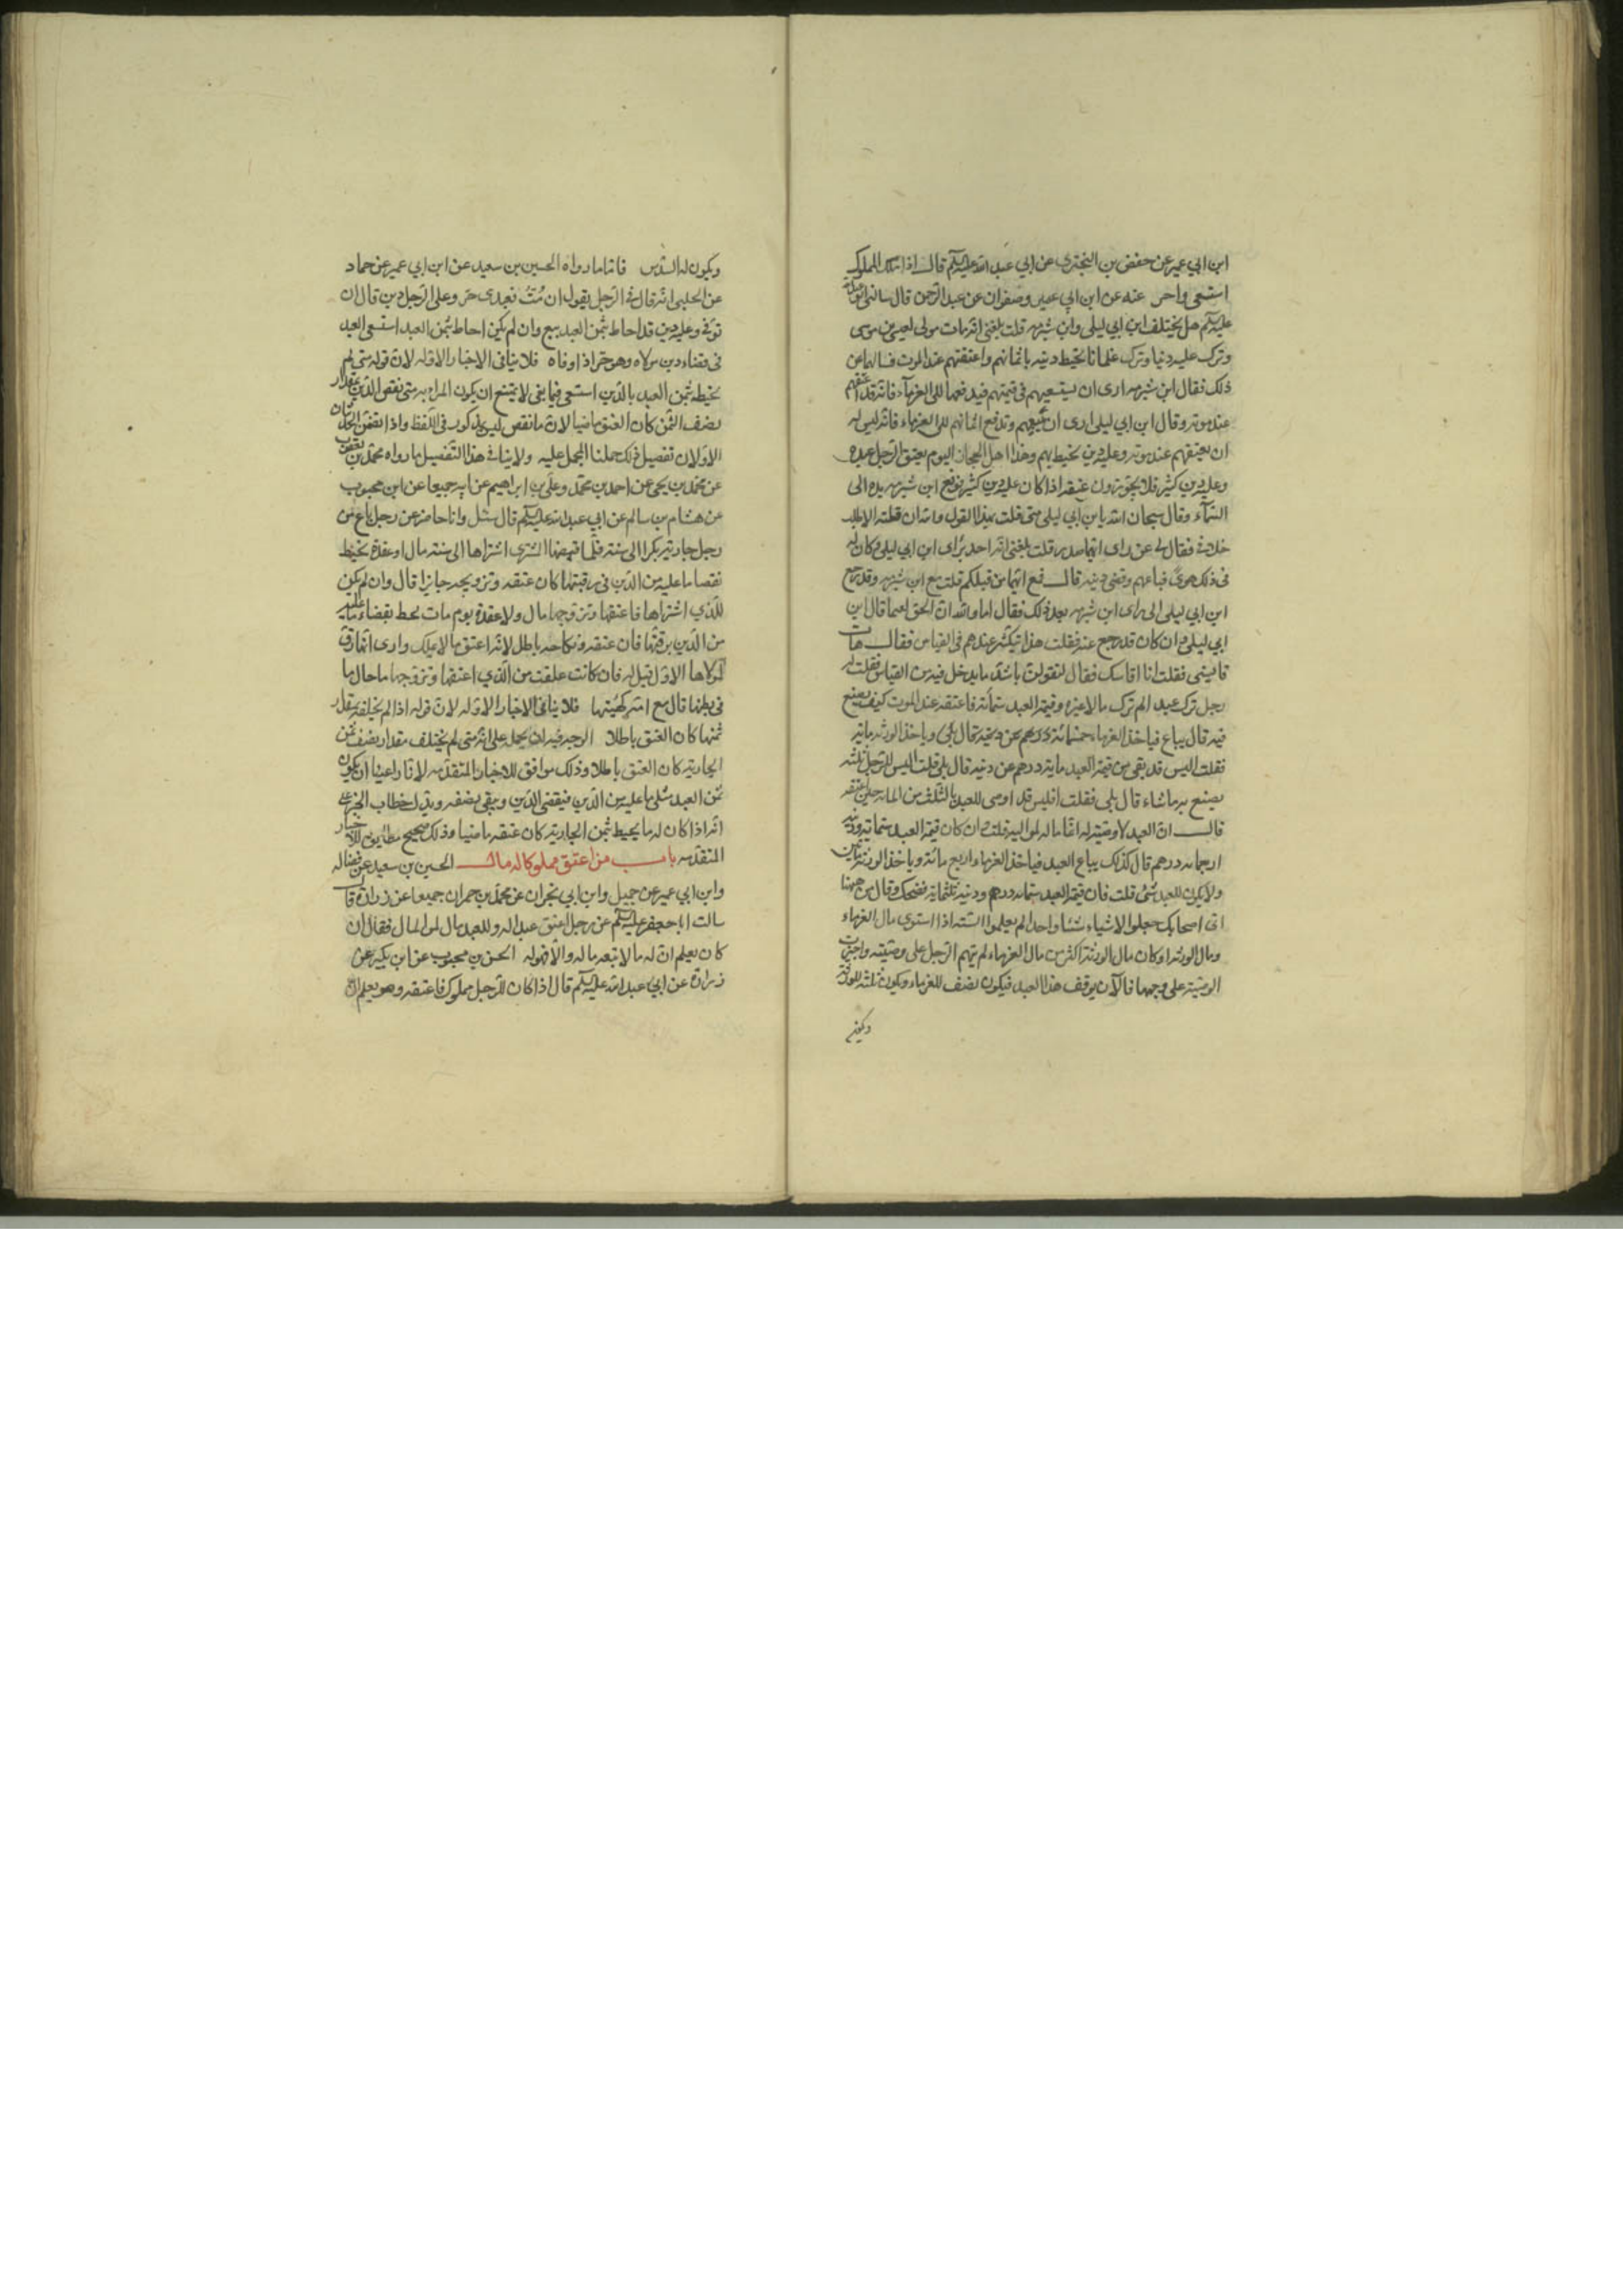 ابن ابي عمير عن حفص بن البختري عن ابي عبد الله عليه السلم قال اذا ملك المملوك
استسعى واجر عنه عن ابن ابي عمير وصفوان عن عبد الرحمن قال سالني ابو عبد الله
عليه السلم هل يختلف ابن ابي ليلى وابن شبرمه قلت بلغني انه مات مولى لعيسى بن موسى
وترك عليه دينا وترك غلمانا يحيط دينه باثمانهم واعتقهم عند الموت فسالهما عن
ذلك فقال ابن شبرمه ارى ان يستسعيهم في قيمتهم فيدفعها الى الغرماء فانه قد اعتقهم
عند موته وقال ابن ابي ليلى ارى ان يبيعهم وتدفع اثمانهم الى الغرماء فانه ليس له
ان يعتقهم عند موته وعليه دين يحيط بهم وهذا اهل الحجاز اليوم يعتق الرجل عبده
وعليه دين كثير فلا يجوزون عتقه اذا كان عليه دين كثير فرفع ابن شبرمه يده الى
السماء وقال سبحان الله يا بن ابي ليلى متى قلت بهذا القول والله ان قلته الا طلب
خلافي فقال لي عن راى ايهما صدر قلت بلغني انه اخذ براى ابن ابي ليلى وكان له
في ذلك هوى فباعهم وقضى دينه قال فمع ايهما من قبلكم قلت مع ابن شبرمه وقد رجع
ابن ابي ليلى الى راى ابن شبرمه بعد ذلك فقال اما والله ان الحق لفيما قال ابن
ابي ليلى وان كان قد رجع عنه فقلت هذا ينكسر عندهم في القياس فقال هات
قايسني فقلت انا اقايسك فقال لتقولن باشد ما يدخل فيه من القياس فقلت له
رجل ترك عبدا لم يترك مالا غيره وقيمة العبد ستمائة فاعتقه عند الموت كيف يصنع
فيه قال يباع فياخذ الغرماء خمسمائة درهم عن دينه قال بلى وياخذ الورثه مايه
فقلت اليس قد بقي من قيمة العبد مايه درهم عن دينه قال بلى قلت اليس للرجل ثلثه
يصنع به ما شاء قال بلى فقلت افليس قد اوصى للعبد بالثلث من المايه حين اعتقه
قال ان العبد لا وصية له انما ماله لمواليه قلت وان كان قيمة العبد ستمايه ودينه
اربعمايه درهم قال كذلك يباع العبد فياخذ الغرماء اربع مائة وياخذ الورثة مايتين
ولا يكون للعبد شئ قلت فان قيمة العبد ستمايه درهم ودينه ثلثمايه فضحك وقال من ههنا
اتى اصحابك جعلوا الاشياء شيئا واحدا لم يعلموا السنه اذا استوى مال الغرماء
ومال الورثه او كان مال الورثة اكثر من مال الغرماء لم يتهم الرجل على وصيته واجيزت
الوصية على وجهها فالآن يوقف هذا العبد فيكون نصف للغرماء ويكون ثلثه للورثة
ويكون
ويكون له السدس فاما ما رواه الحسين بن سعيد عن ابن ابي عمير عن حماد
عن الحلبي انه قال في الرجل يقول ان مُتُّ فعبدى حر وعلى الرجل دين قال ان
توفي وعليه دين قد احاط بثمن العبد بيع وان لم يكن احاط بثمن العبد استسعى العبد
في قضاء دين مولاه وهو حر اذا اوفاه فلا ينافي الاخبار الاوله لان قوله متى لم
يحيط بثمن العبد بالدين استسعى فيما بقي لا يمتنع ان يكون المراد به متى نقص الدين بمقدار
نصف الثمن كان العتق ماضيا لان ما نقص ليس بمذكور في اللفظ واذا تضمن الخبران
الاولان تفصيل ذلك حملنا المجمل عليه ولا ينافي هذا التفصيل ما رواه محمد بن يعقوب
عن محمد بن يحيى عن احمد بن محمد وعلي بن ابراهيم عن ابيه جميعا عن ابن محبوب
عن هشام بن سالم عن ابي عبد الله عليه السلم قال سئل وانا حاضر عن رجل باع من
رجل جارية بكرا الى سنة فلما قبضها المشترى اشتراها الى سنه مال او عقدة يحيط
بقضاء ما عليه من الدين في رقبتها كان عتقه وتزويجه جايزا قال وان لم يكن
للذي اشتراها فاعتقها وتزوجها مال ولا عقدة يوم مات يحط بقضاء ما عليه
من الدين برقبتها فان عتقه ونكاحه باطل لانه اعتق ما لا يملك وارى انها رق
لمولاها الاول قيل له فان كانت علقت من الذي اعتقها وتزوجها ما حال ما
في بطنها قال مع امه كهيئتها فلا ينافي الاخبار الاوله لان قوله اذا لم يخلف مقدار
ثمنها كان العتق باطلا الوجه فيه ان يحمل على انه متى لم يختلف مقدار نصف ثمن
الجارية كان العتق باطلا وذلك موافق للاخبار المتقدمه لانا راعينا ان يكون
ثمن العبد مثلى ما عليه من الدين فيقضى الدين ويبقى نصفه ويدل خطاب الخبر على
انه اذا كان له ما يحيط بثمن الجارية كان عتقه ماضيا وذلك صحيح مطابق للاخبار
المتقدمه باب من اعتق مملوكا له مال الحسين بن سعيد عن فضاله
وابن ابي عمير عن جميل وابن ابي نجران عن محمد بن حمران جميعا عن زرارة قال
سالت ابا جعفر عليه السلم عن رجل اعتق عبدا له وللعبد مال لمن المال فقال ان
كان يعلم ان له مالا تبعه ماله والا فهو له الحسن بن محبوب عن ابن بكير عن
زرارة عن ابي عبد الله عليه السلم قال اذا كان للرجل مملوك فاعتقه وهو يعلم ان